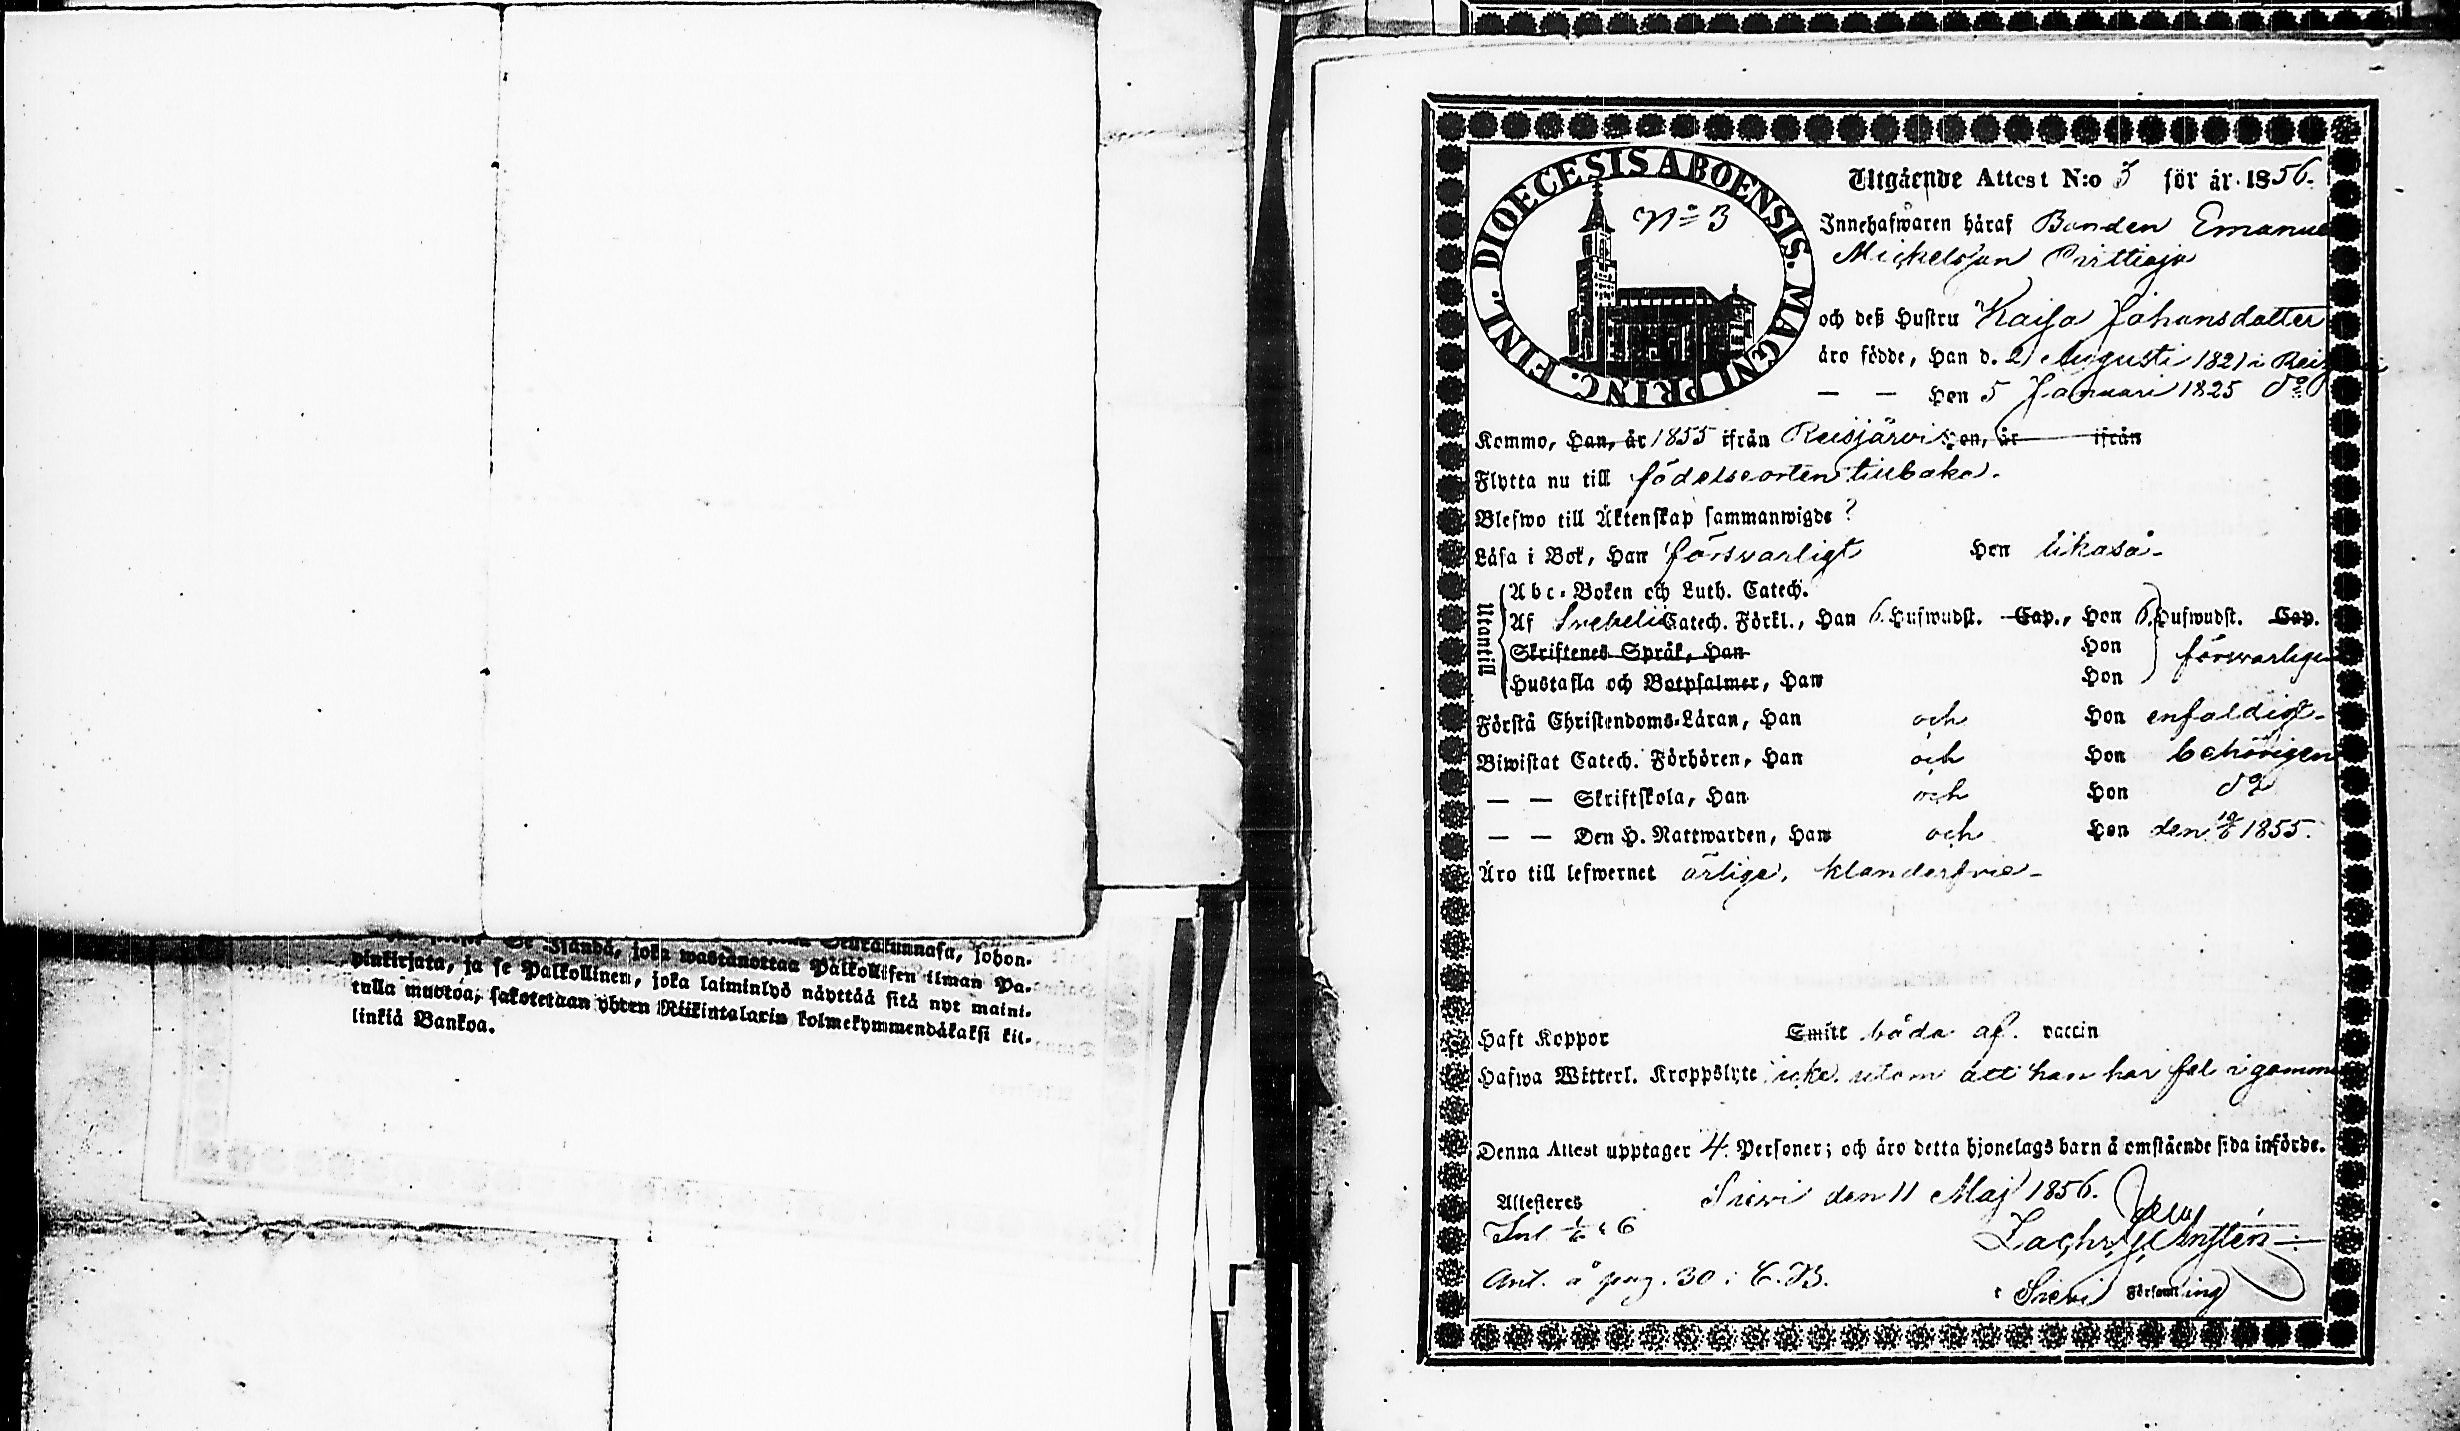 Seurakunnasa, johon.
Se Isändä, joka wastanottaa Palkollisen ilman Pa-
pinkirjata, ja se Palkollinen, joka laiminlyö näyttää sitä nyt maini-
tulla muotoa, sakotetaan yhten Riikintalarin kolmekymmendäkaksi kil-
linkiä Bankoa.
DIOECESIS ABOENSIS. MAGNI PRINC. FINL.
N:o 3
Utgående Attest N:o 3 för år 1856.
Innehafwaren häraf Bonden Emanuel
Mickelsson
och deß Hustru Kaisa Johansdotter
äro födde, Han d. 21 Augusti 1821 i
— — Hon 5 Januari 1825 d:o
Kommo, Han, år 1855 ifrån Reisjärvi Hon, år ifrån
Flytta nu till födelseorten tillbaka.
Blefwo till Äktenskap sammanwigde ?
Läsa i Bok, Han försvarligt Hon likaså
Utantill
Abc-Boken och Luth. Catech.
Af Svebelii Catech. Förkl., Han 6. Hufwudst. Cap., Hon 6. Hufwudst. Cap.
Skriftenes Språk, Han Hon försvarligen
Hustafla och Botpsalmer, Han Hon
Förstå Christendoms-Läran, Han och Hon enfaldigt
Biwistat Catech. Förhören, Han och Hon behörigen
— — Skriftskola, Han och Hon d:o
— — Den H. Nattwarden, Han och Hon den 1855.
Äro till lefwernet ärlige, klanderfrie
Haft Koppor Smitt båda af. vaccin
Hafwa Witterl. Kroppslyte icke utom att han har fel i
Denna Attest upptager 4. Personer; och äro detta hjonelags barn å omstående sida införde.
Attesteres Sievi den 11 Maj 1856.
Zachr.
Ant. å pag. 30 i C.B.
i Sievi Församling